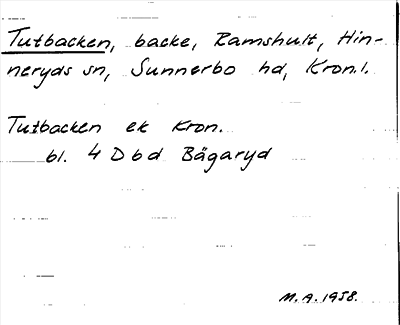 Tutbacken, backe, Ramshult, Hin-
neryds sn, Sunnerbo hd, Kron.l.
Tutbacken ek Kron.
bl. 4 D b d Bägaryd
M.A. 1958.